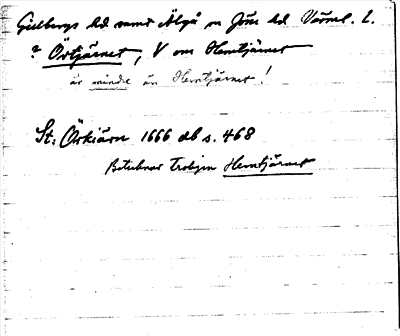 Gillbergs hd samt Älgå sn Jösse hd Värml. l.
? Örtjärnet, V om Hemtjärnet
är mindre än Hemtjärnet!
St: Örkiärn 1666 db s. 468
Betecknar troligen Hemtjärnet